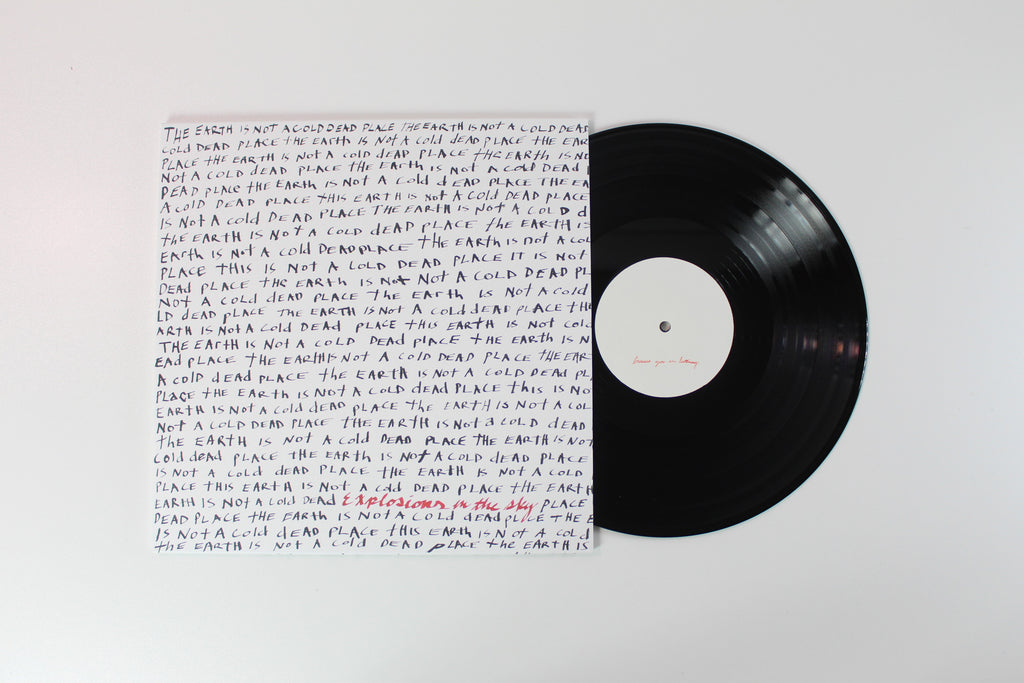 THE EARTH IS NOT A COLD DEAD PLACE THE EARTH IS NOT A COLD DEAD
COLD DEAD PLACE THE EARTH IS NOT A COLD DEAD PLACE THE EAR
PLACE THE EARTH IS NOT A COLD DEAD PLACE THE EARTH IS NO
NOT A COLD DEAD PLACE THE EARTH IS NOT A COLD DEAD
DEAD PLACE THE EARTH IS NOT A COLD DEAD PLACE THE EA
A COLD DEAD PLACE THIS EARTH IS NOT A COLD DEAD PLACE
IS NOT A COLD DEAD PLACE THE EARTH IS NOT A COLD D
THE EARTH IS NOT A COLD DEAD PLACE THE EARTH IS
EARTH IS NOT A COLD DEAD PLACE THE EARTH IS NOT A COL
PLACE THIS IS NOT A COLD DEAD PLACE IT IS NOT
DEAD PLACE THE EARTH IS NOT NOT A COLD DEAD PL
NOT A COLD DEAD PLACE THE EARTH IS NOT A COLD DEA
LD DEAD PLACE THE EARTH IS NOT A COLD DEAD PLACE TH
ARTH IS NOT A COLD DEAD PLACE THIS EARTH IS NOT COL
THE EARTH IS NOT A COLD DEAD PLACE THE EARTH IS N
EAD PLACE THE EARTH IS NOT A COLD DEAD PLACE THE EAR
A COLD DEAD PLACE THE EARTH IS NOT A COLD DEAD PL
PLACE THE EARTH IS NOT A COLD DEAD PLACE THIS IS NO
EARTH IS NOT A COLD DEAD PLACE THE EARTH IS NOT A COL
NOT A COLD DEAD PLACE THE EARTH IS NOT A COLD DEAD
THE EARTH IS NOT A COLD DEAD PLACE THE EARTH IS NOT
COLD DEAD PLACE THE EARTH IS NOT A COLD DEAD PLACE
IS NOT A COLD DEAD PLACE THE EARTH IS NOT A COLD
PLACE THIS EARTH IS NOT A COLD DEAD PLACE THE EARTH
EARTH IS NOT A COLD DEAD Explosions in the sky PLACE
DEAD PLACE THE EARTH IS NOT A COLD DEAD PLACE THE E
IS NOT A COLD DEAD PLACE THIS EARTH IS NOT A COLD
THE EARTH IS NOT A COLD DEAD PLACE THE EARTH IS